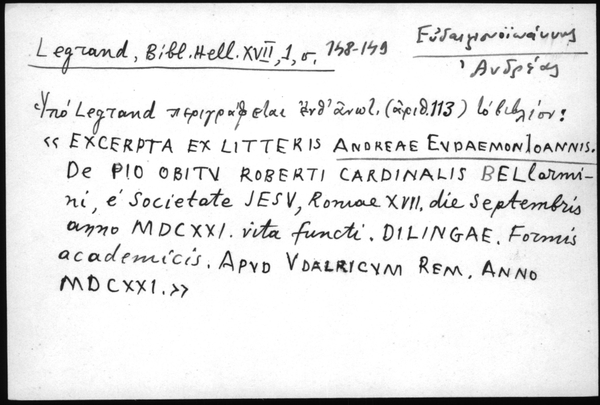 Legrand, Bibl. Hell. XVII, 1, σ. 148-149
Εὐδαιμονοϊωάννης
Ἀνδρέας
Ὑπό Legrand περιγράφεται ὑπ' ἀνωτ. (ἀριθ. 113) τό βιβλίον:
« EXCERPTA EX LITTERIS ANDREAE EUDAEMONJOANNIS.
De PIO OBITV ROBERTI CARDINALIS BELlarmi-
ni, é Societate JESV, Romae XVII. die Septembris
anno MDCXXI. vita functi. DILINGAE. Formis
academicis. APVD VDALRICVM REM. ANNO
MDCXXI. »